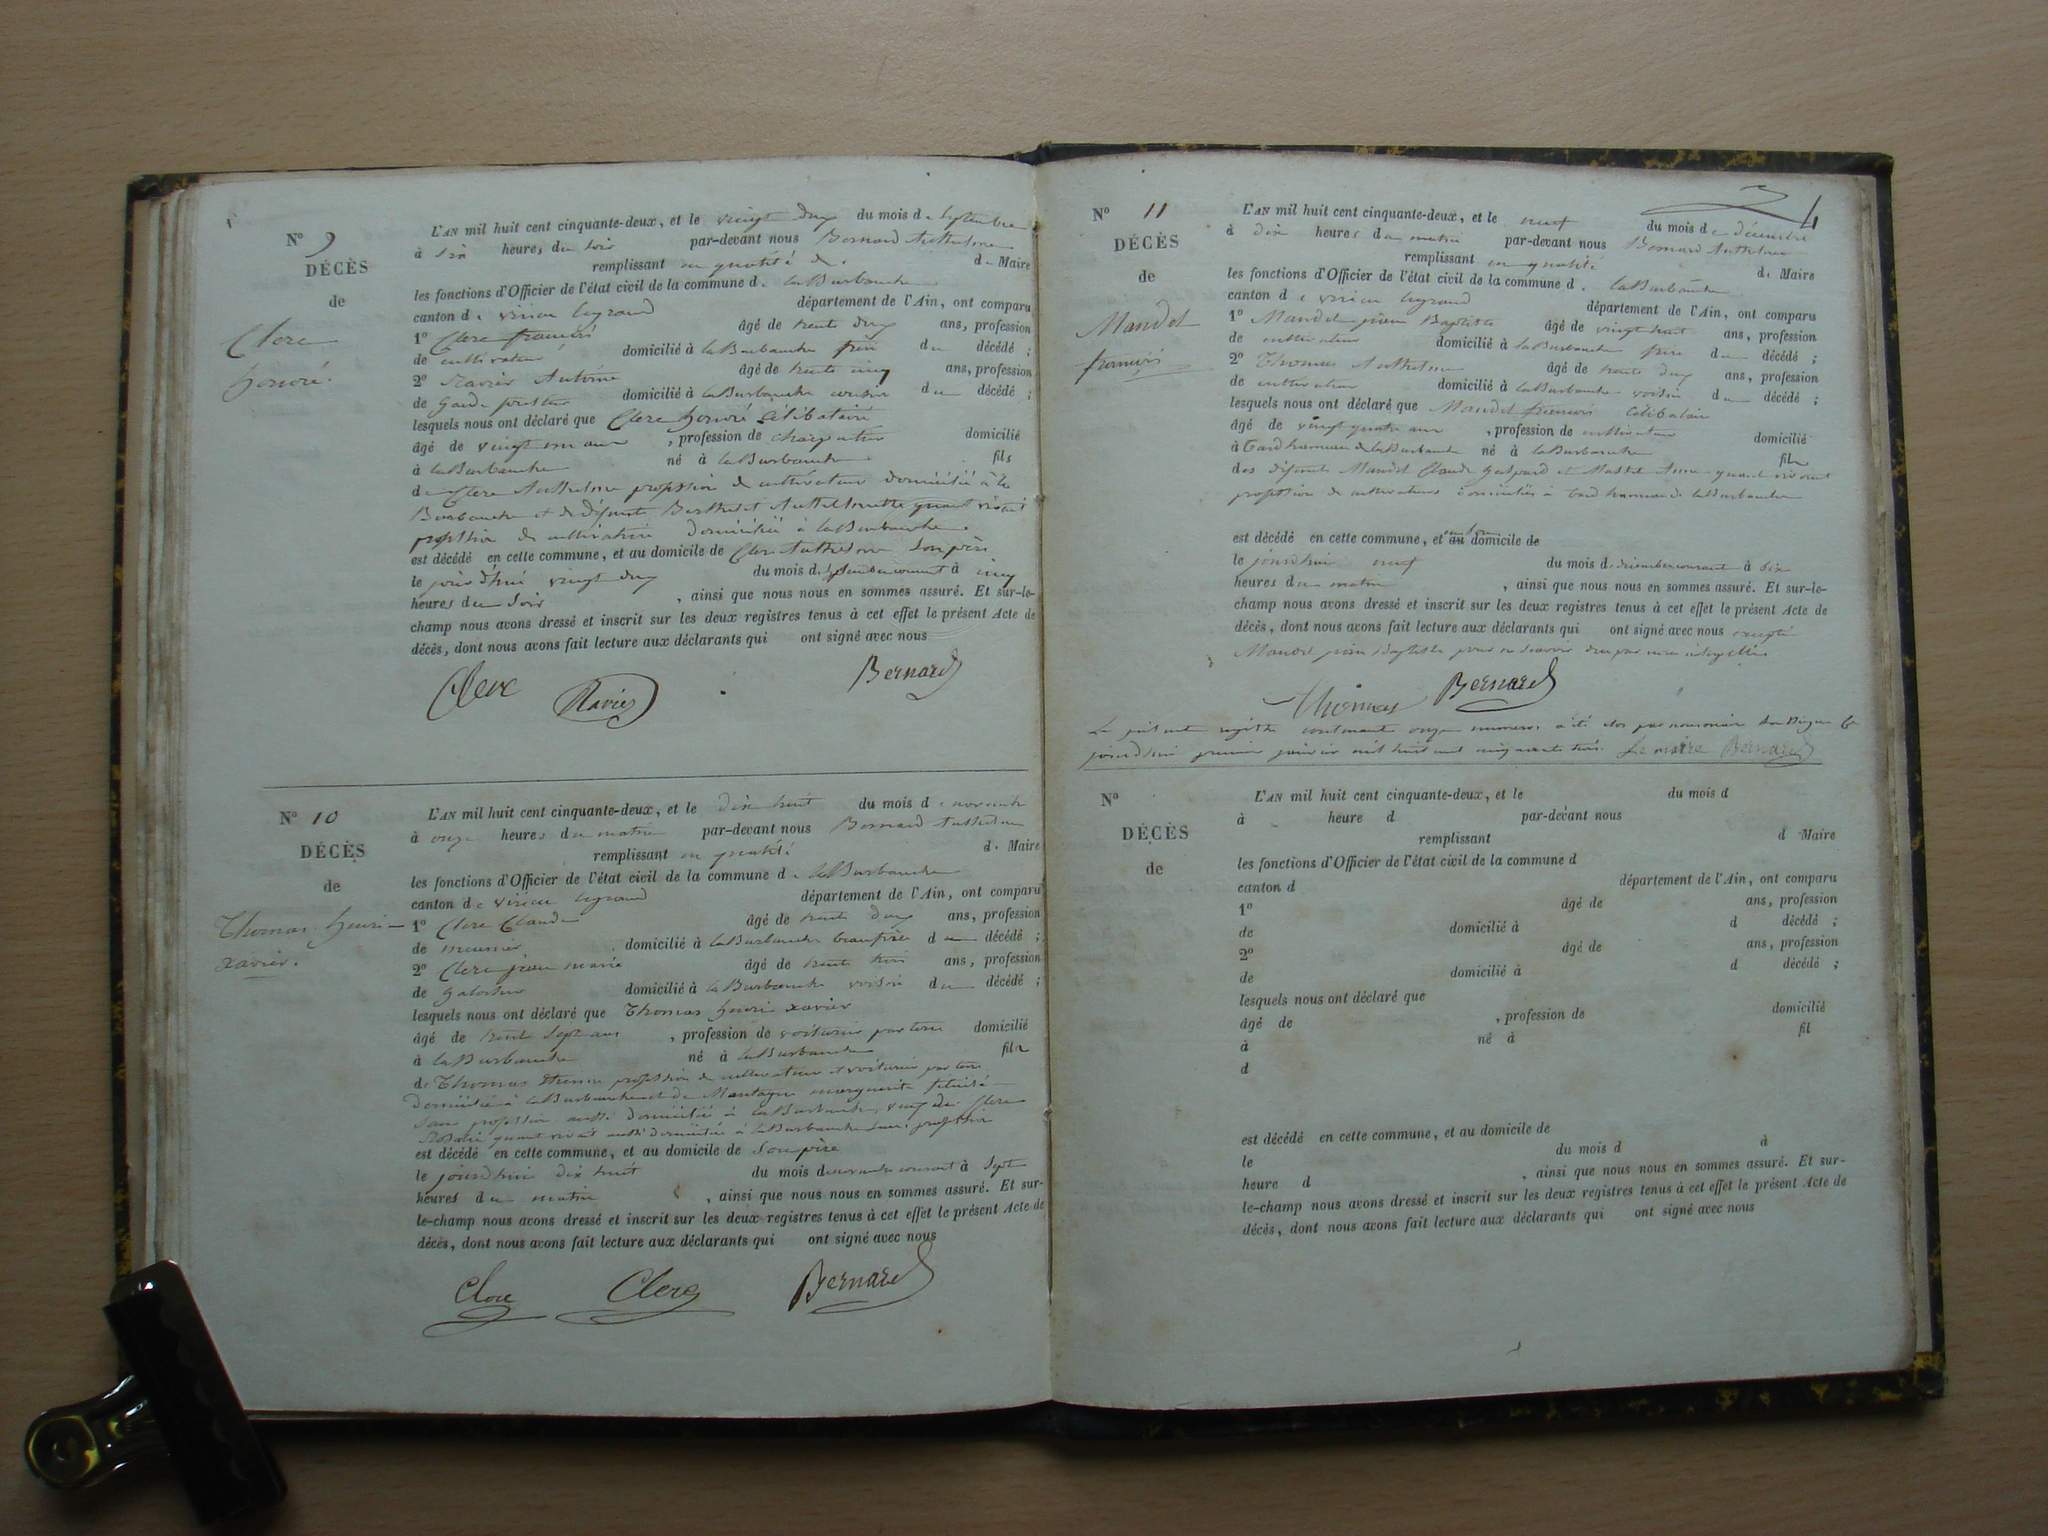 N° 9
DÉCÈS
de
Clerc
honoré.
L'AN mil huit cent cinquante-deux, et le vingt deux du mois de Septembre
à Six heures, du Soir par-devant nous Bernard Anthelme
remplissant en qualité de Maire
les fonctions d'Officier de l'état civil de la commune d. laBurbanche
canton de virieu legrand département de l'Ain, ont comparu
1° Clerc francois âgé de trente deux ans, profession
de cultivateur domicilié à laBurbanche frère du décédé ;
2° Ravier Antoine âgé de trente cinq ans, profession
de Garde domicilié à laBurbanche voisin du décédé ;
lesquels nous ont déclaré que Clerc honoré Célibataire
âgé de vingt un ans , profession de charpentier domicilié
à laBurbanche né à laBurbanche fils
de Clerc Anthelme profession de cultivateur domicilié à la
Burbanche et de défunte Berthelet Anthelmette quand vivait
profession de cultivatrice domiciliée à laBurbanche.
est décédé en cette commune, et au domicile de Clerc Anthelme Son père
le jourd'hui vingt deux du mois de Septembre courant à cinq
heures du Soir , ainsi que nous nous en sommes assuré. Et sur-le-
champ nous avons dressé et inscrit sur les deux registres tenus à cet effet le présent Acte de
décès, dont nous avons fait lecture aux déclarants qui ont signé avec nous
Clerc Ravier Bernard
N° 10
DÉCÈS
de
Thomas henri
xavier.
L'AN mil huit cent cinquante-deux, et le dix huit du mois de novembre
à onze heures du matin par-devant nous Bernard Anthelme
remplissant en qualité d. Maire
les fonctions d'Officier de l'état civil de la commune d. laBurbanche
canton de virieu legrand département de l'Ain, ont comparu
1° Clerc Claude âgé de trente deux ans, profession
de meunier domicilié à laBurbanche beaufrère du décédé ;
2° Clerc jean marie âgé de trente trois ans, profession
de domicilié à laBurbanche voisin du décédé ;
lesquels nous ont déclaré que Thomas henri xavier
âgé de trente Sept ans , profession de voiturier par terre domicilié
à laBurbanche né à laBurbanche fils
de Thomas Etienne profession de cultivateur et voiturier par terre
domicilié à laBurbanche et de Montagne marguerite félicité
Sans profession aussi domiciliée à laBurbanche, veuf de Clerc
Rosalie quand vivait aussi domiciliée à laBurbanche Sans profession
est décédé en cette commune, et au domicile de Son père
le jourd'hui dix huit du mois de novembre courant à Sept
heures du matin , ainsi que nous nous en sommes assuré. Et sur-
le-champ nous avons dressé et inscrit sur les deux registres tenus à cet effet le présent Acte de
décès, dont nous avons fait lecture aux déclarants qui ont signé avec nous
Clerc Clerc Bernard
4
N° 11
DÉCÈS
de
Mandet
francois
L'AN mil huit cent cinquante-deux, et le neuf du mois de décembre
à dix heures du matin par-devant nous Bernard Anthelme
remplissant en qualité d. Maire
les fonctions d'Officier de l'état civil de la commune d. laBurbanche
canton de virieu legrand département de l'Ain, ont comparu
1° Mandet jean Baptiste âgé de vingt huit ans, profession
de cultivateur domicilié à laBurbanche frère du décédé ;
2° Thomas Anthelme âgé de trente deux ans, profession
de cultivateur domicilié à laBurbanche voisin du décédé ;
lesquels nous ont déclaré que Mandet francois Célibataire
âgé de vingt quatre ans , profession de cultivateur domicilié
à hameau de laBurbanche né à laBurbanche fils
des défunts Mandet Claude Gaspard et Anne quand vivaient
profession de cultivateurs domiciliés à hameau de laBurbanche
est décédé en cette commune, et au domicile de
le jourd'hui neuf du mois de décembre courant à Six
heures du matin , ainsi que nous nous en sommes assuré. Et sur-le-
champ nous avons dressé et inscrit sur les deux registres tenus à cet effet le présent Acte de
décès, dont nous avons fait lecture aux déclarants qui ont signé avec nous excepté
Mandet jean Baptiste pour ne Savoir
Thomas Bernard
Le présent registre contenant onze numéros a été clos par nous maire Soussigné le
jourd'hui premier janvier mil huit cent cinquante trois. Le maire Bernard
N°
DÉCÈS
de
L'AN mil huit cent cinquante-deux, et le du mois d
à heure d par-devant nous
remplissant d Maire
les fonctions d'Officier de l'état civil de la commune d
canton d département de l'Ain, ont comparu
1° âgé de ans, profession
de domicilié à d décédé ;
2° âgé de ans, profession
de domicilié à d décédé ;
lesquels nous ont déclaré que
âgé de , profession de domicilié
à né à fil
d
est décédé en cette commune, et au domicile de
le du mois d à
heure d , ainsi que nous nous en sommes assuré. Et sur-
le-champ nous avons dressé et inscrit sur les deux registres tenus à cet effet le présent Acte de
décès, dont nous avons fait lecture aux déclarants qui ont signé avec nous